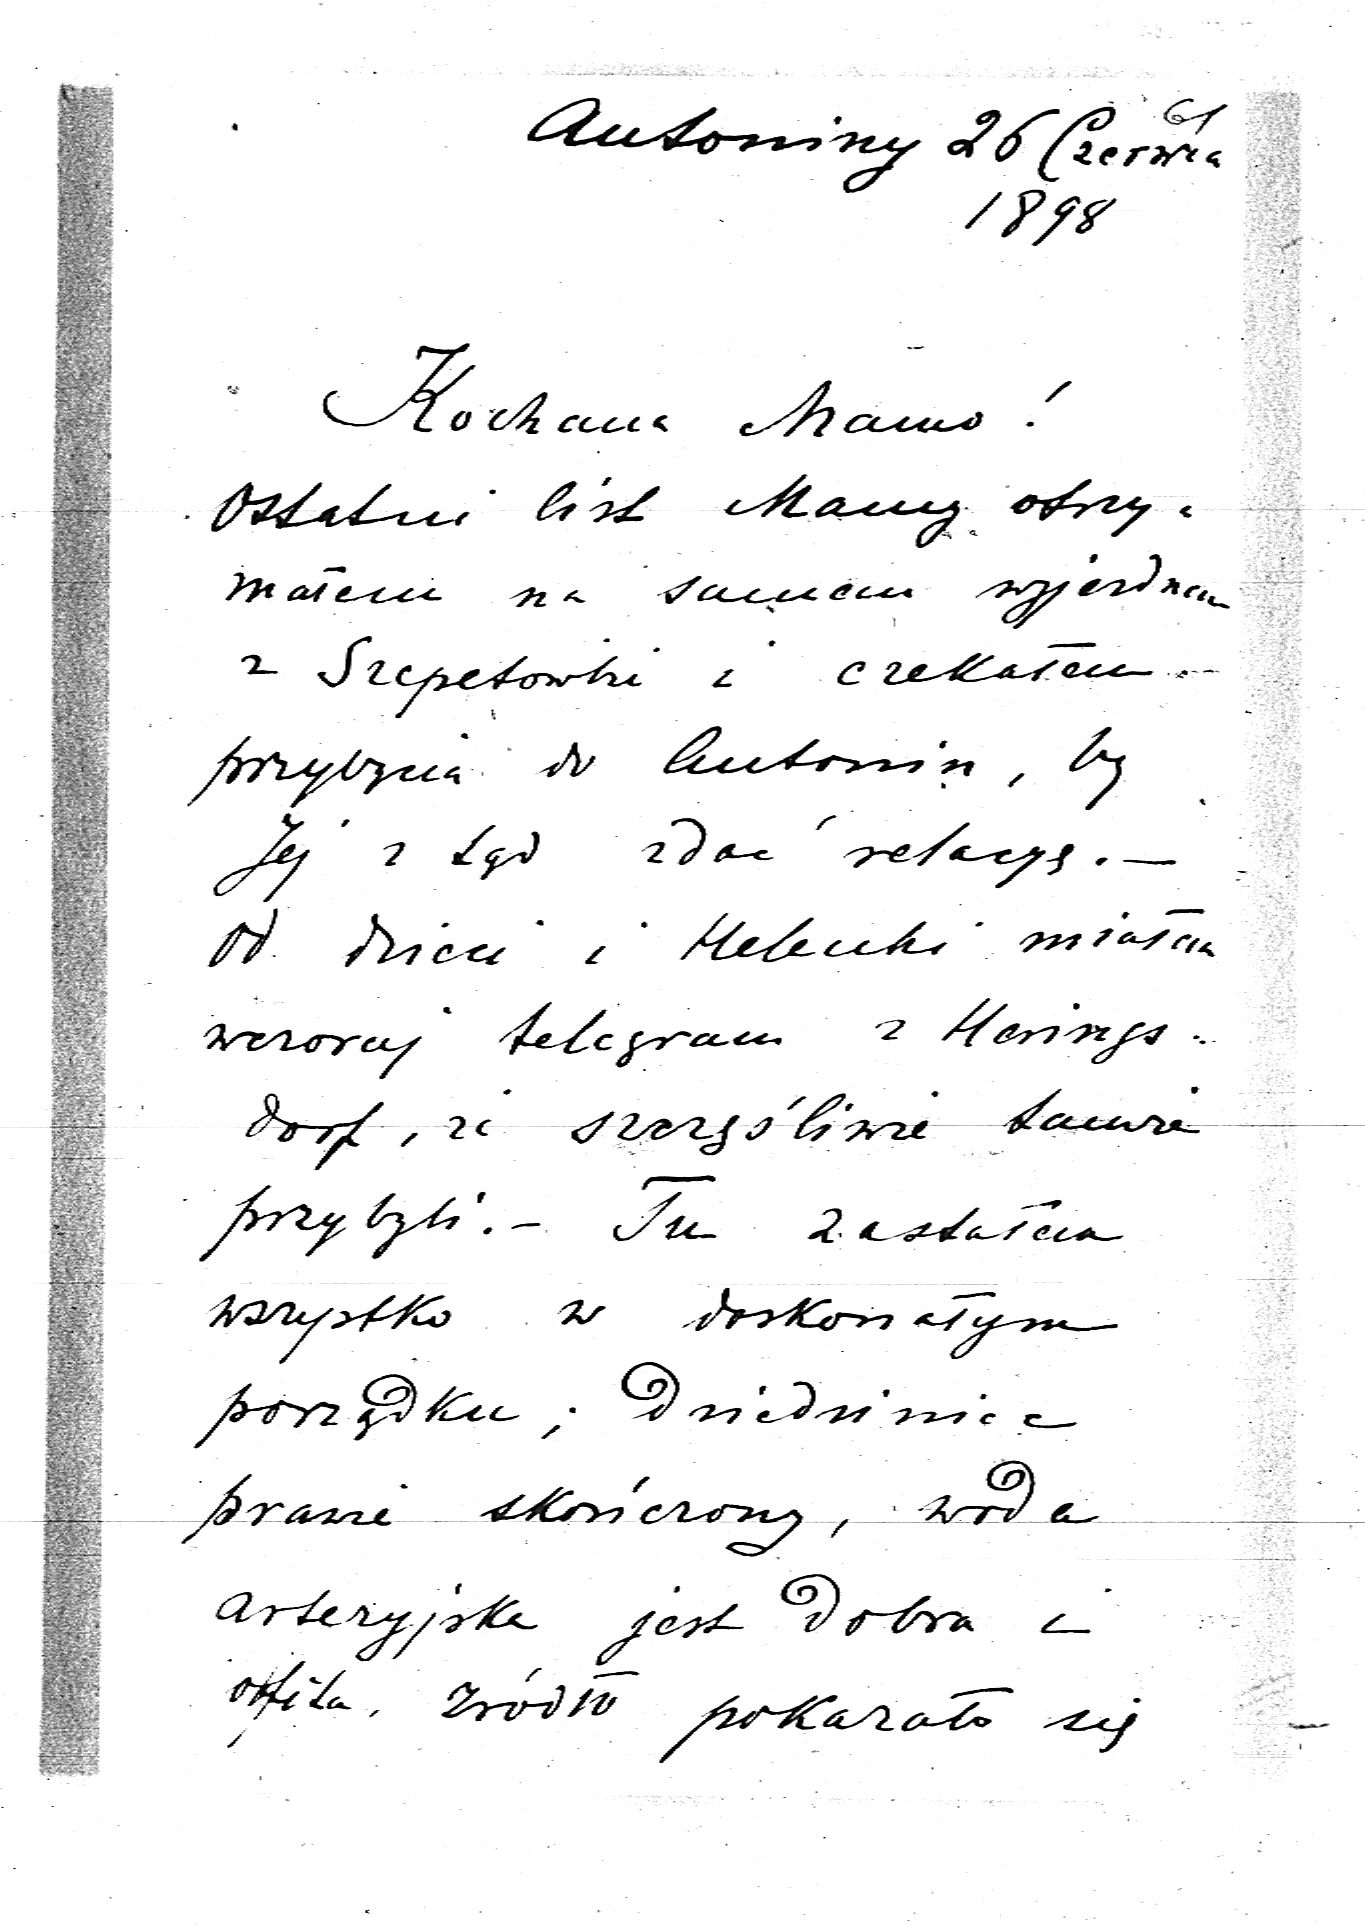 61
Antoniny 26 Czerwca
1898
Kochana Mamo!
Ostatni list Mamy otrzy-
małem na samem wyjezdnem
z Szepetowki i czekałem
przybycia do Antonin, by
Jej z tąd zdać relacyę. —
Od dzieci i Helenki miałem
wczoraj telegram z Herings-
dorf, że szczęśliwie tamże
przybyli. — Tu zastałem
wszystko w doskonałym
porządku; Dziedziniec
prawie skończony, woda
artezyjska jest dobra i
obfita. Zródło pokazało się